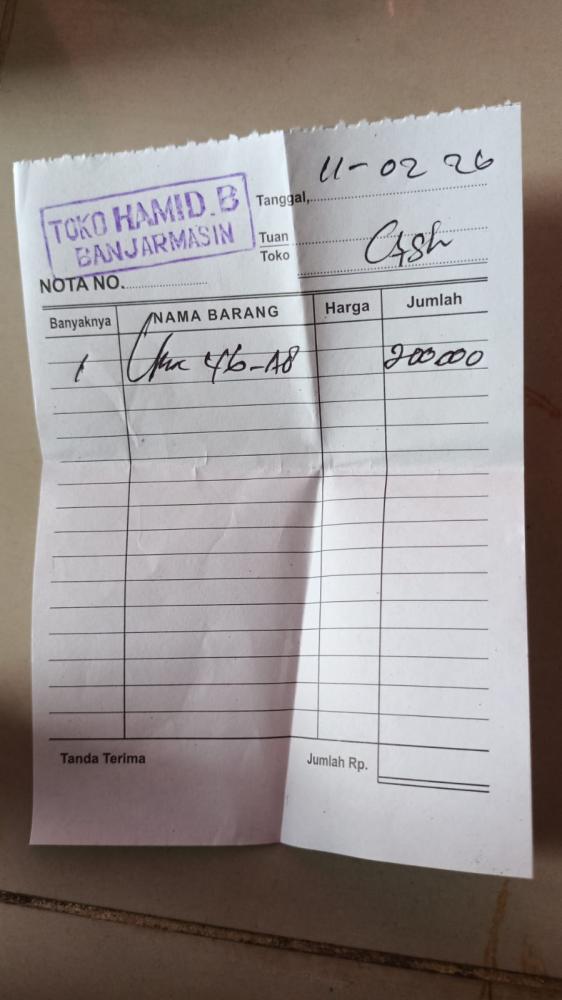 TOKO HAMID.B
BANJARMASIN
Tanggal, 11-02 26
Tuan
Toko
Cash
NOTA NO.
Banyaknya NAMA BARANG Harga Jumlah
1 46-A8 200000
Tanda Terima Jumlah Rp.